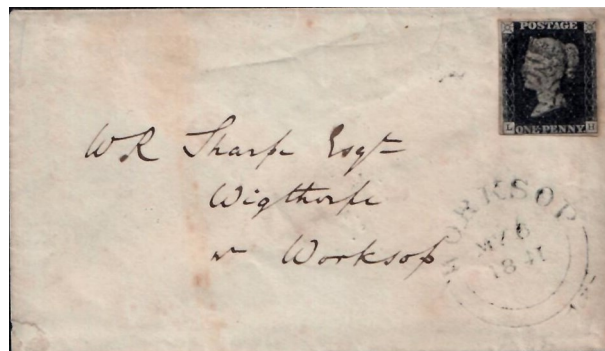 POSTAGE
L H
ONE PENNY
WR Sharpe Esqr
Wigthorpe
nr Worksop
WORKSOP
MY 6
1841